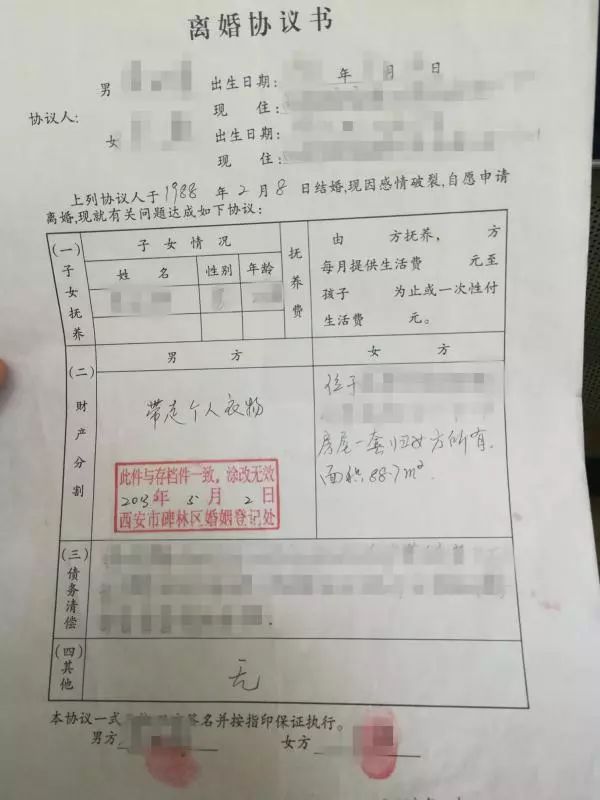 离婚协议书
男 出生日期: 年 月 日
现 住:
协议人:
女 出生日期:
现 住:
上列协议人于1988年2月8日结婚,现因感情破裂,自愿申请
离婚,现就有关问题达成如下协议:
(一)子女抚养
子女情况
姓名 性别 年龄
抚养费
由 方抚养, 方
每月提供生活费 元至
孩子 为止或一次性付
生活费 元。
(二)财产分割
男方
女方
带走个人衣物
位于
房屋一套归女方所有,
面积88.7m².
此件与存档件一致,涂改无效
年5月2日
西安市碑林区婚姻登记处
(三)债务清偿
(四)其他
无
本协议一式 签名并按指印保证执行。
男方 女方